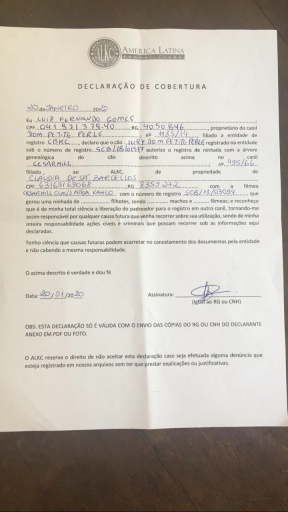 ALKC
AMERICA LATINA
DECLARAÇÃO DE COBERTURA
20 de JANEIRO 2020
Eu LUIZ FERNANDO GOMES
CPF 041.921.379.40 RG 4050846, proprietário do canil
DOM PETITE PERLE, nº 1123/14, filiado a entidade de
registro CBKC, declaro que o cão LUPY DOM PETITE PERLE registrado na entidade
sob o número de registro autorizo o registro de ninhada com a árvore
genealógica do cão descrito acima no canil
CESARHILL, nº 995/66
filiado ao ALKC, de propriedade de
CLAUDIA DE SÁ BARCELLOS
CPF 63163763068 RG 8353242 com a fêmea
com o número de registro que
gerou uma ninhada de filhotes, sendo machos e fêmeas; e reconheço
que é de minha total ciência a liberação do padreador para o registro em outro canil, tornando-me
assim responsável por qualquer causa futura que venha recorrer sobre sua utilização, sendo de minha
inteira responsabilidade ações cíveis e criminais que possam recorrer sob as informações aqui
declaradas.
Tenho ciência que causas futuras podem acarretar no cancelamento dos documentos pela entidade
e não cabendo a mesma responsabilidade.
O acima descrito é verdade e dou fé
Data: 20/01/2020 Assinatura:
(Igual ao RG ou CNH)
OBS: ESTA DECLARAÇÃO SÓ É VÁLIDA COM O ENVIO DAS CÓPIAS DO RG OU CNH DO DECLARANTE
ANEXO EM PDF OU FOTO.
O ALKC reserva o direito de não aceitar esta declaração caso seja efetuada alguma denúncia que
esteja registrado em nossos arquivos sem ter que prestar explicações ou justificativas.